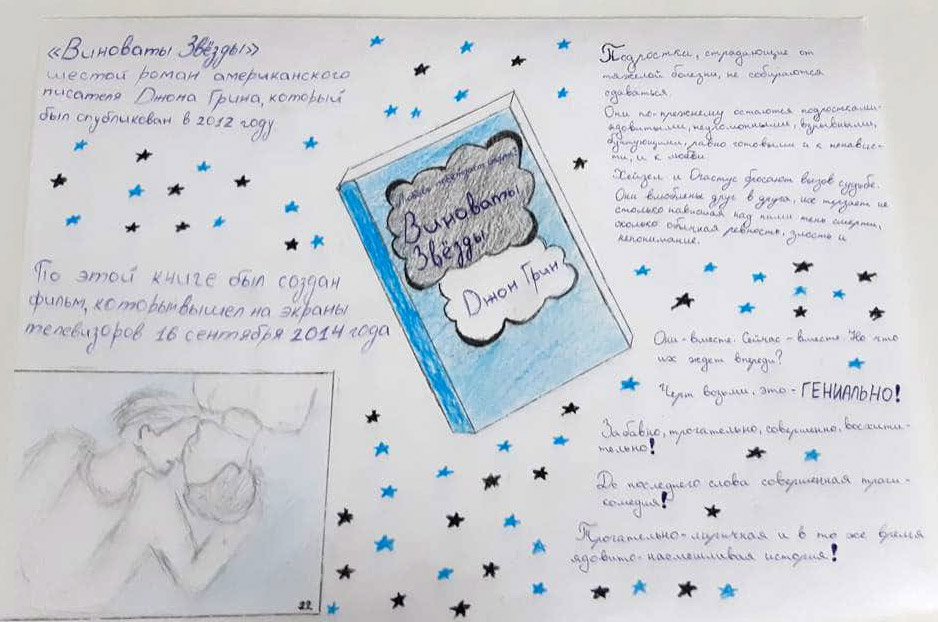 «Виноваты Звёзды»
шестой роман американского
писателя Джона Грина, который
был опубликован в 2012 году
По этой книге был создан
фильм, который вышел на экраны
телевизоров 16 сентября 2014 года
22
Виноваты
Звёзды
Джон Грин
Подростки, страдающие от
тяжелой болезни, не собираются
сдаваться.
Они по-прежнему остаются подростками-
ядовитыми, неугомонными, взрывными,
бунтующими, равно готовыми и к ненавис-
ти, и к любви.
Хейзел и Огастус бросают вызов судьбе.
Они влюблены друг в друга, их терзает не
столько нависшая над ними тень смерти,
сколько обычная ревность, злость и
непонимание.
Они - вместе. Сейчас - вместе. Но что
их ждет впереди?
Черт возьми, это - ГЕНИАЛЬНО!
Забавно, трогательно, совершенно, восхити-
тельно!
До последнего слова совершенная траги-
комедия!
Трогательно-лиричная и в то же время
ядовито-насмешливая история!